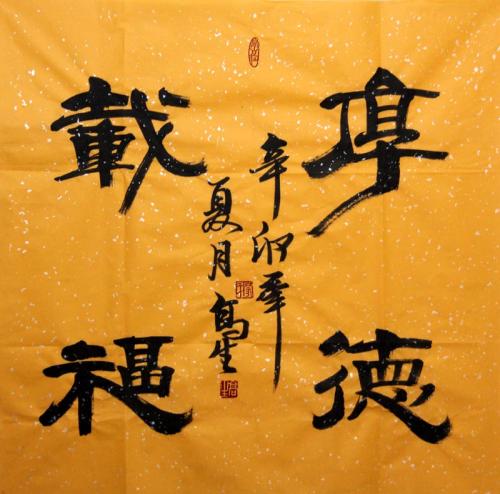 厚德
載福
辛卯年
夏月高